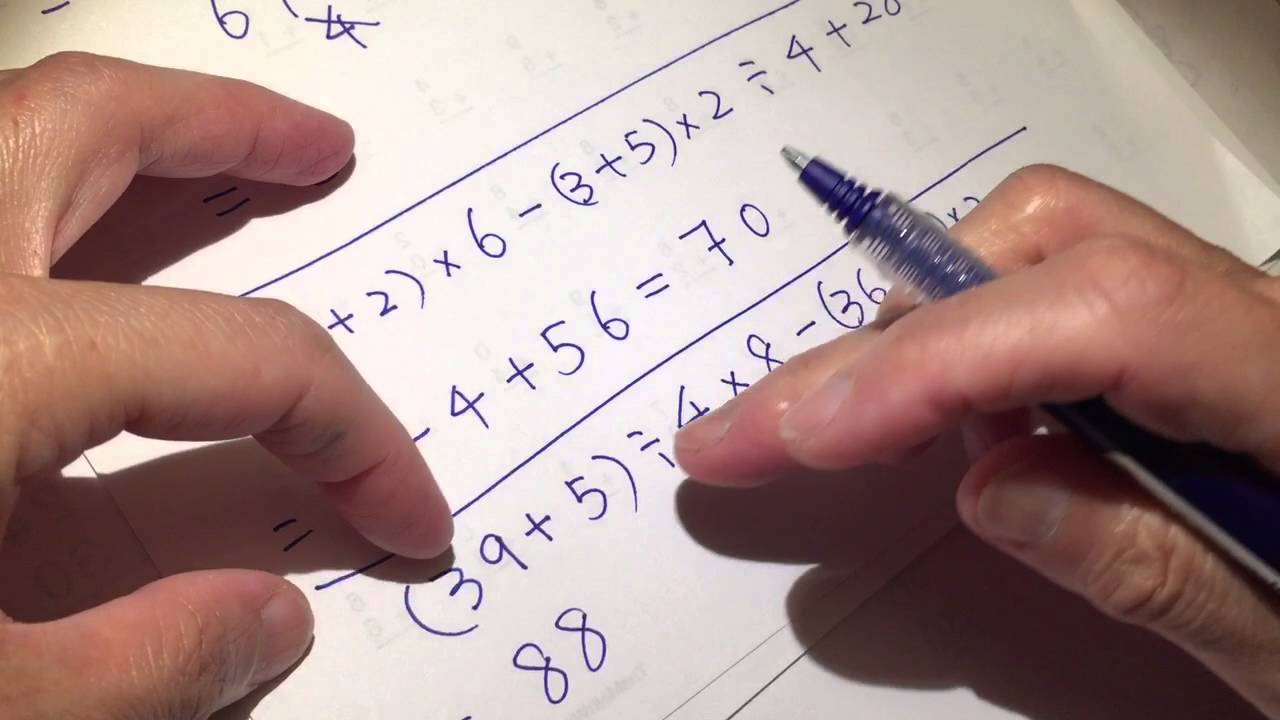 6
+ 2) × 6 - (3+5) × 2 ÷ 4 + 20
=
- 4 + 56 = 70
(39 + 5) ÷ 4 × 8 - (36
=
88